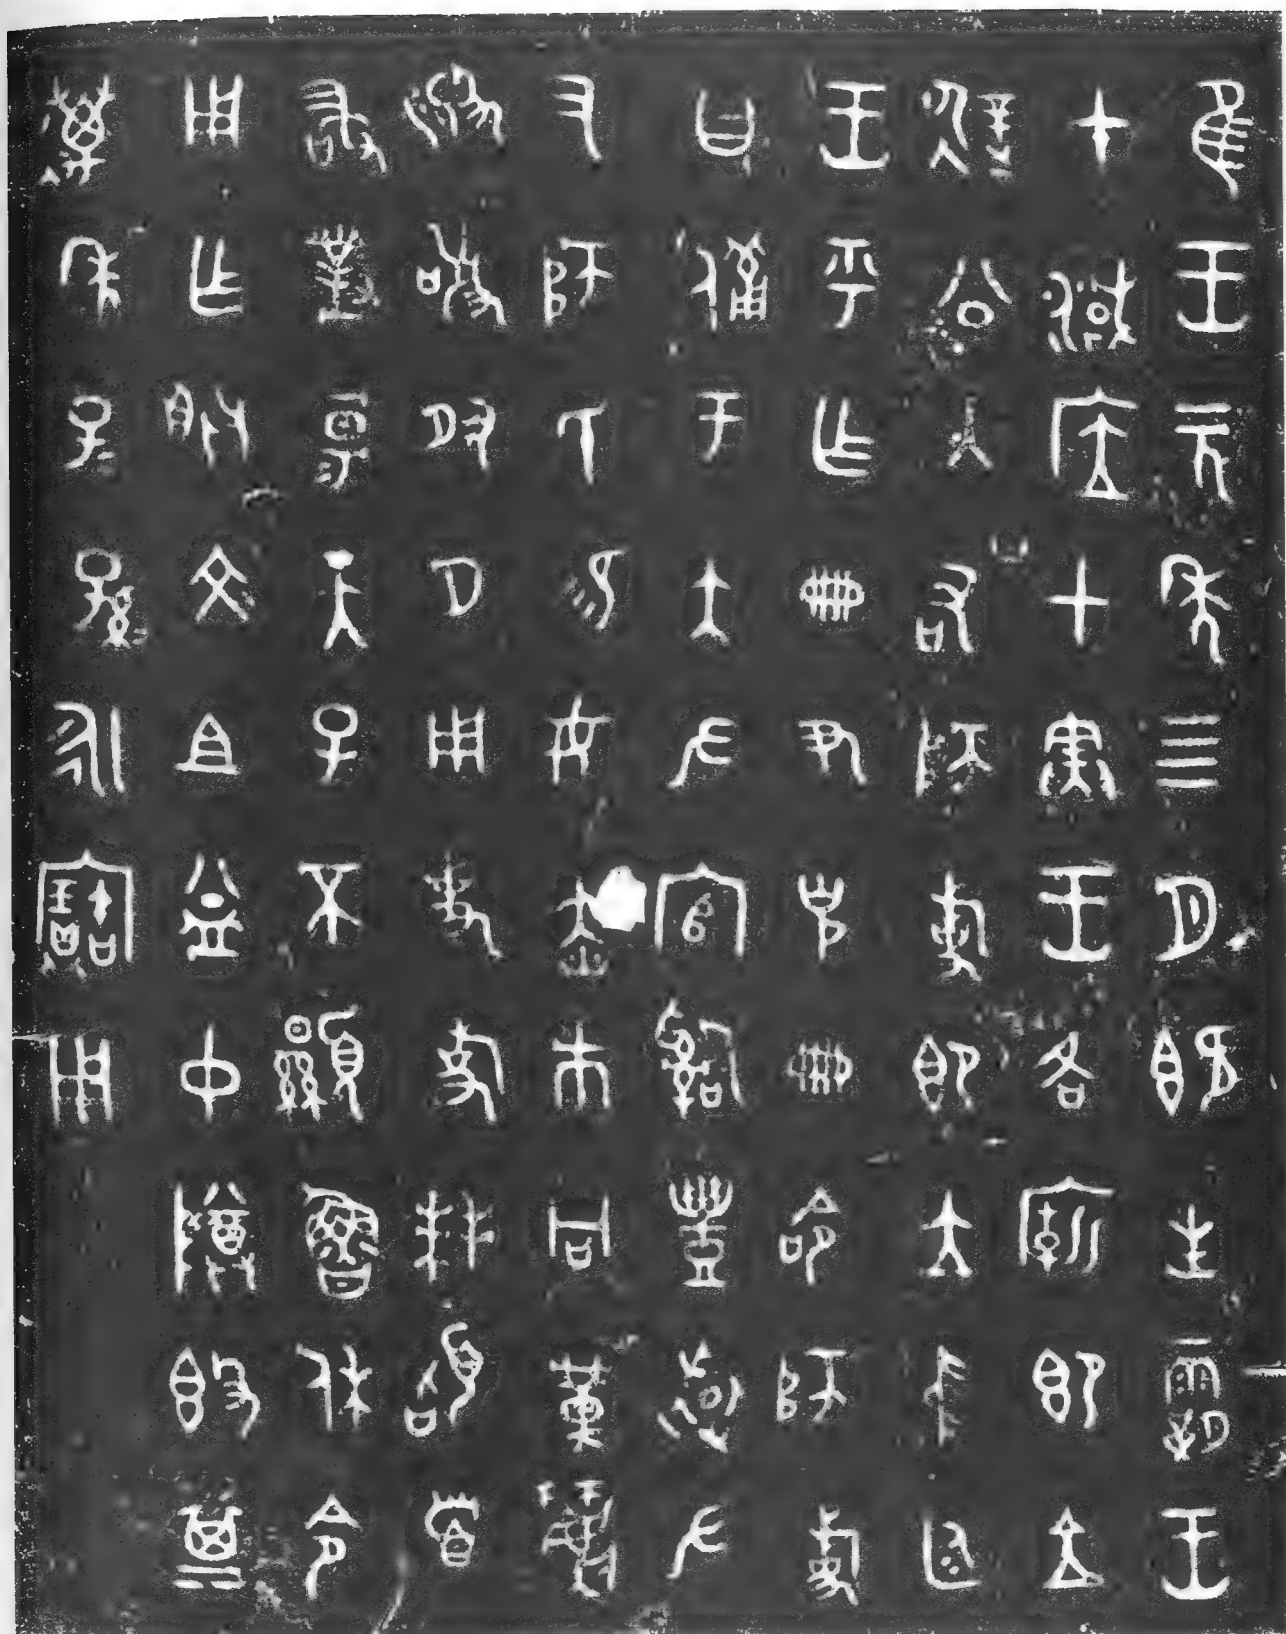 隹王元年四月既生霸王
才減应甲寅王各廟即立
遟公入右師旋即立中廷
王乎乍冊尹克冊命師旋
曰備于大左官𤔲豐還左
右師氏易女赤市冋黃麗
般敬夙夕用事旋拜𩒨首
敢對揚天子不顯魯休令
用乍朕文且益中尊𣪘其
萬年子=孫=永寶用